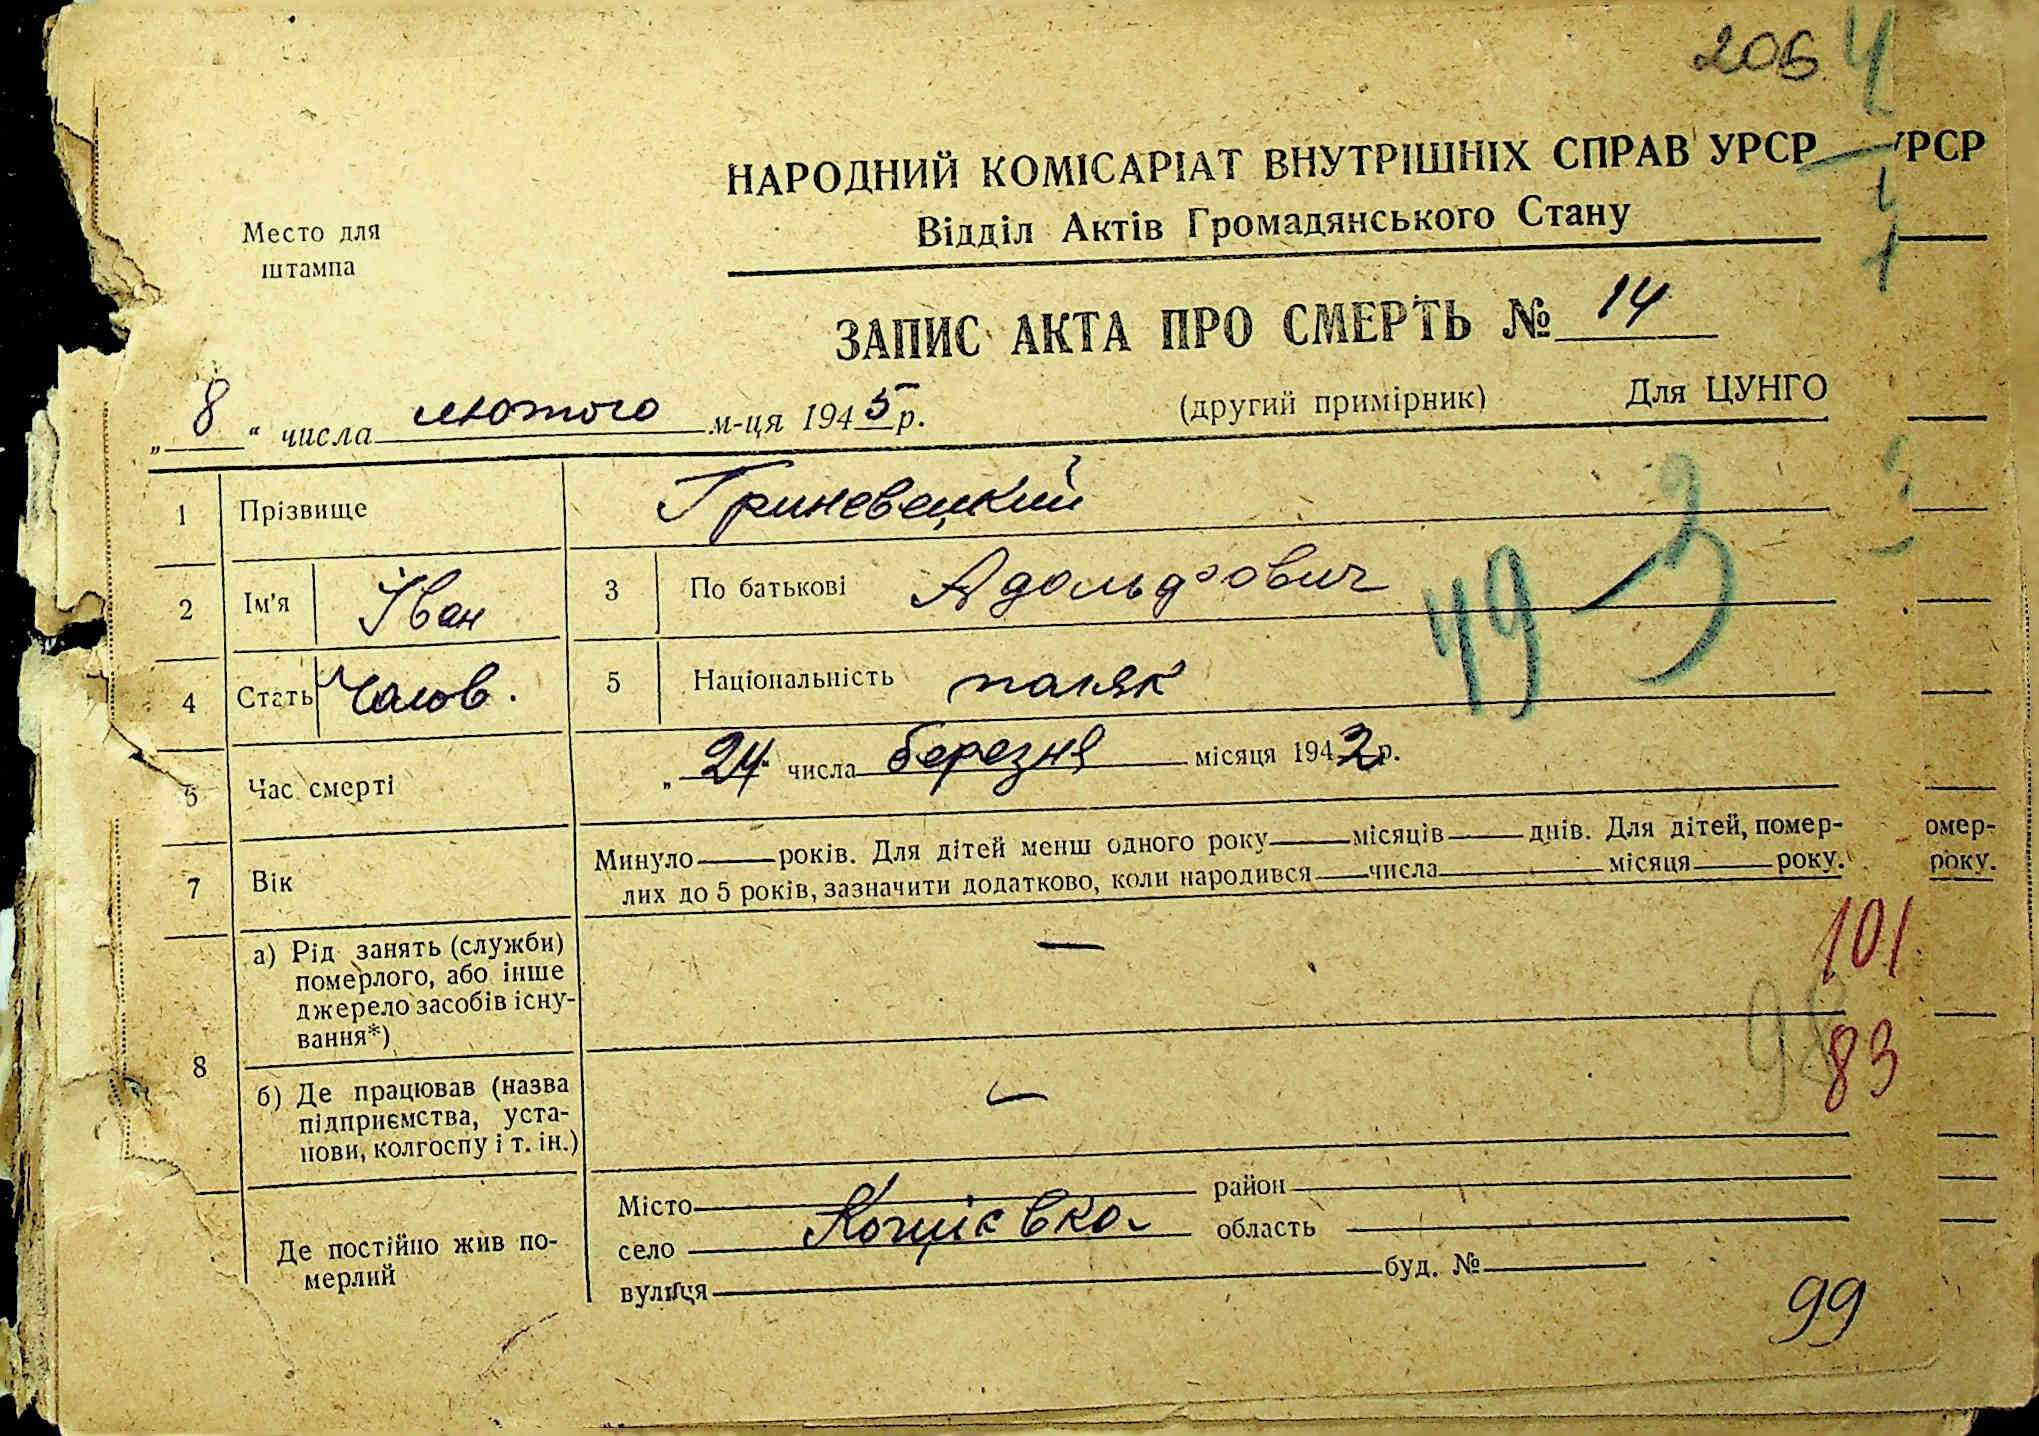 206 4
НАРОДНИЙ КОМІСАРІАТ ВНУТРІШНІХ СПРАВ УРСР УРСР
Відділ Актів Громадянського Стану
1
1
Место для
штампа
ЗАПИС АКТА ПРО СМЕРТЬ № 14
„ 8 “ числа лютого м-ця 1945 р. (другий примірник) Для ЦУНГО
1 Прізвище Гриневецкий
2 Ім'я Іван 3 По батькові Адольфович
4 Стать Чолов. 5 Національність поляк
49 3
6 Час смерті „ 24 “ числа березня місяця 1942 р.
7 Вік Минуло років. Для дітей менш одного року місяців днів. Для дітей, помер- омер-
лих до 5 років, зазначити додатково, коли народився числа місяця року. року.
8 а) Рід занять (служби)
померлого, або інше
джерело засобів існу-
вання*)
101
98
83
б) Де працював (назва
підприємства, уста-
нови, колгоспу і т. ін.)
Де постійно жив по-
мерлий
Місто район
село Кощіевка область
вулиця буд. №
99